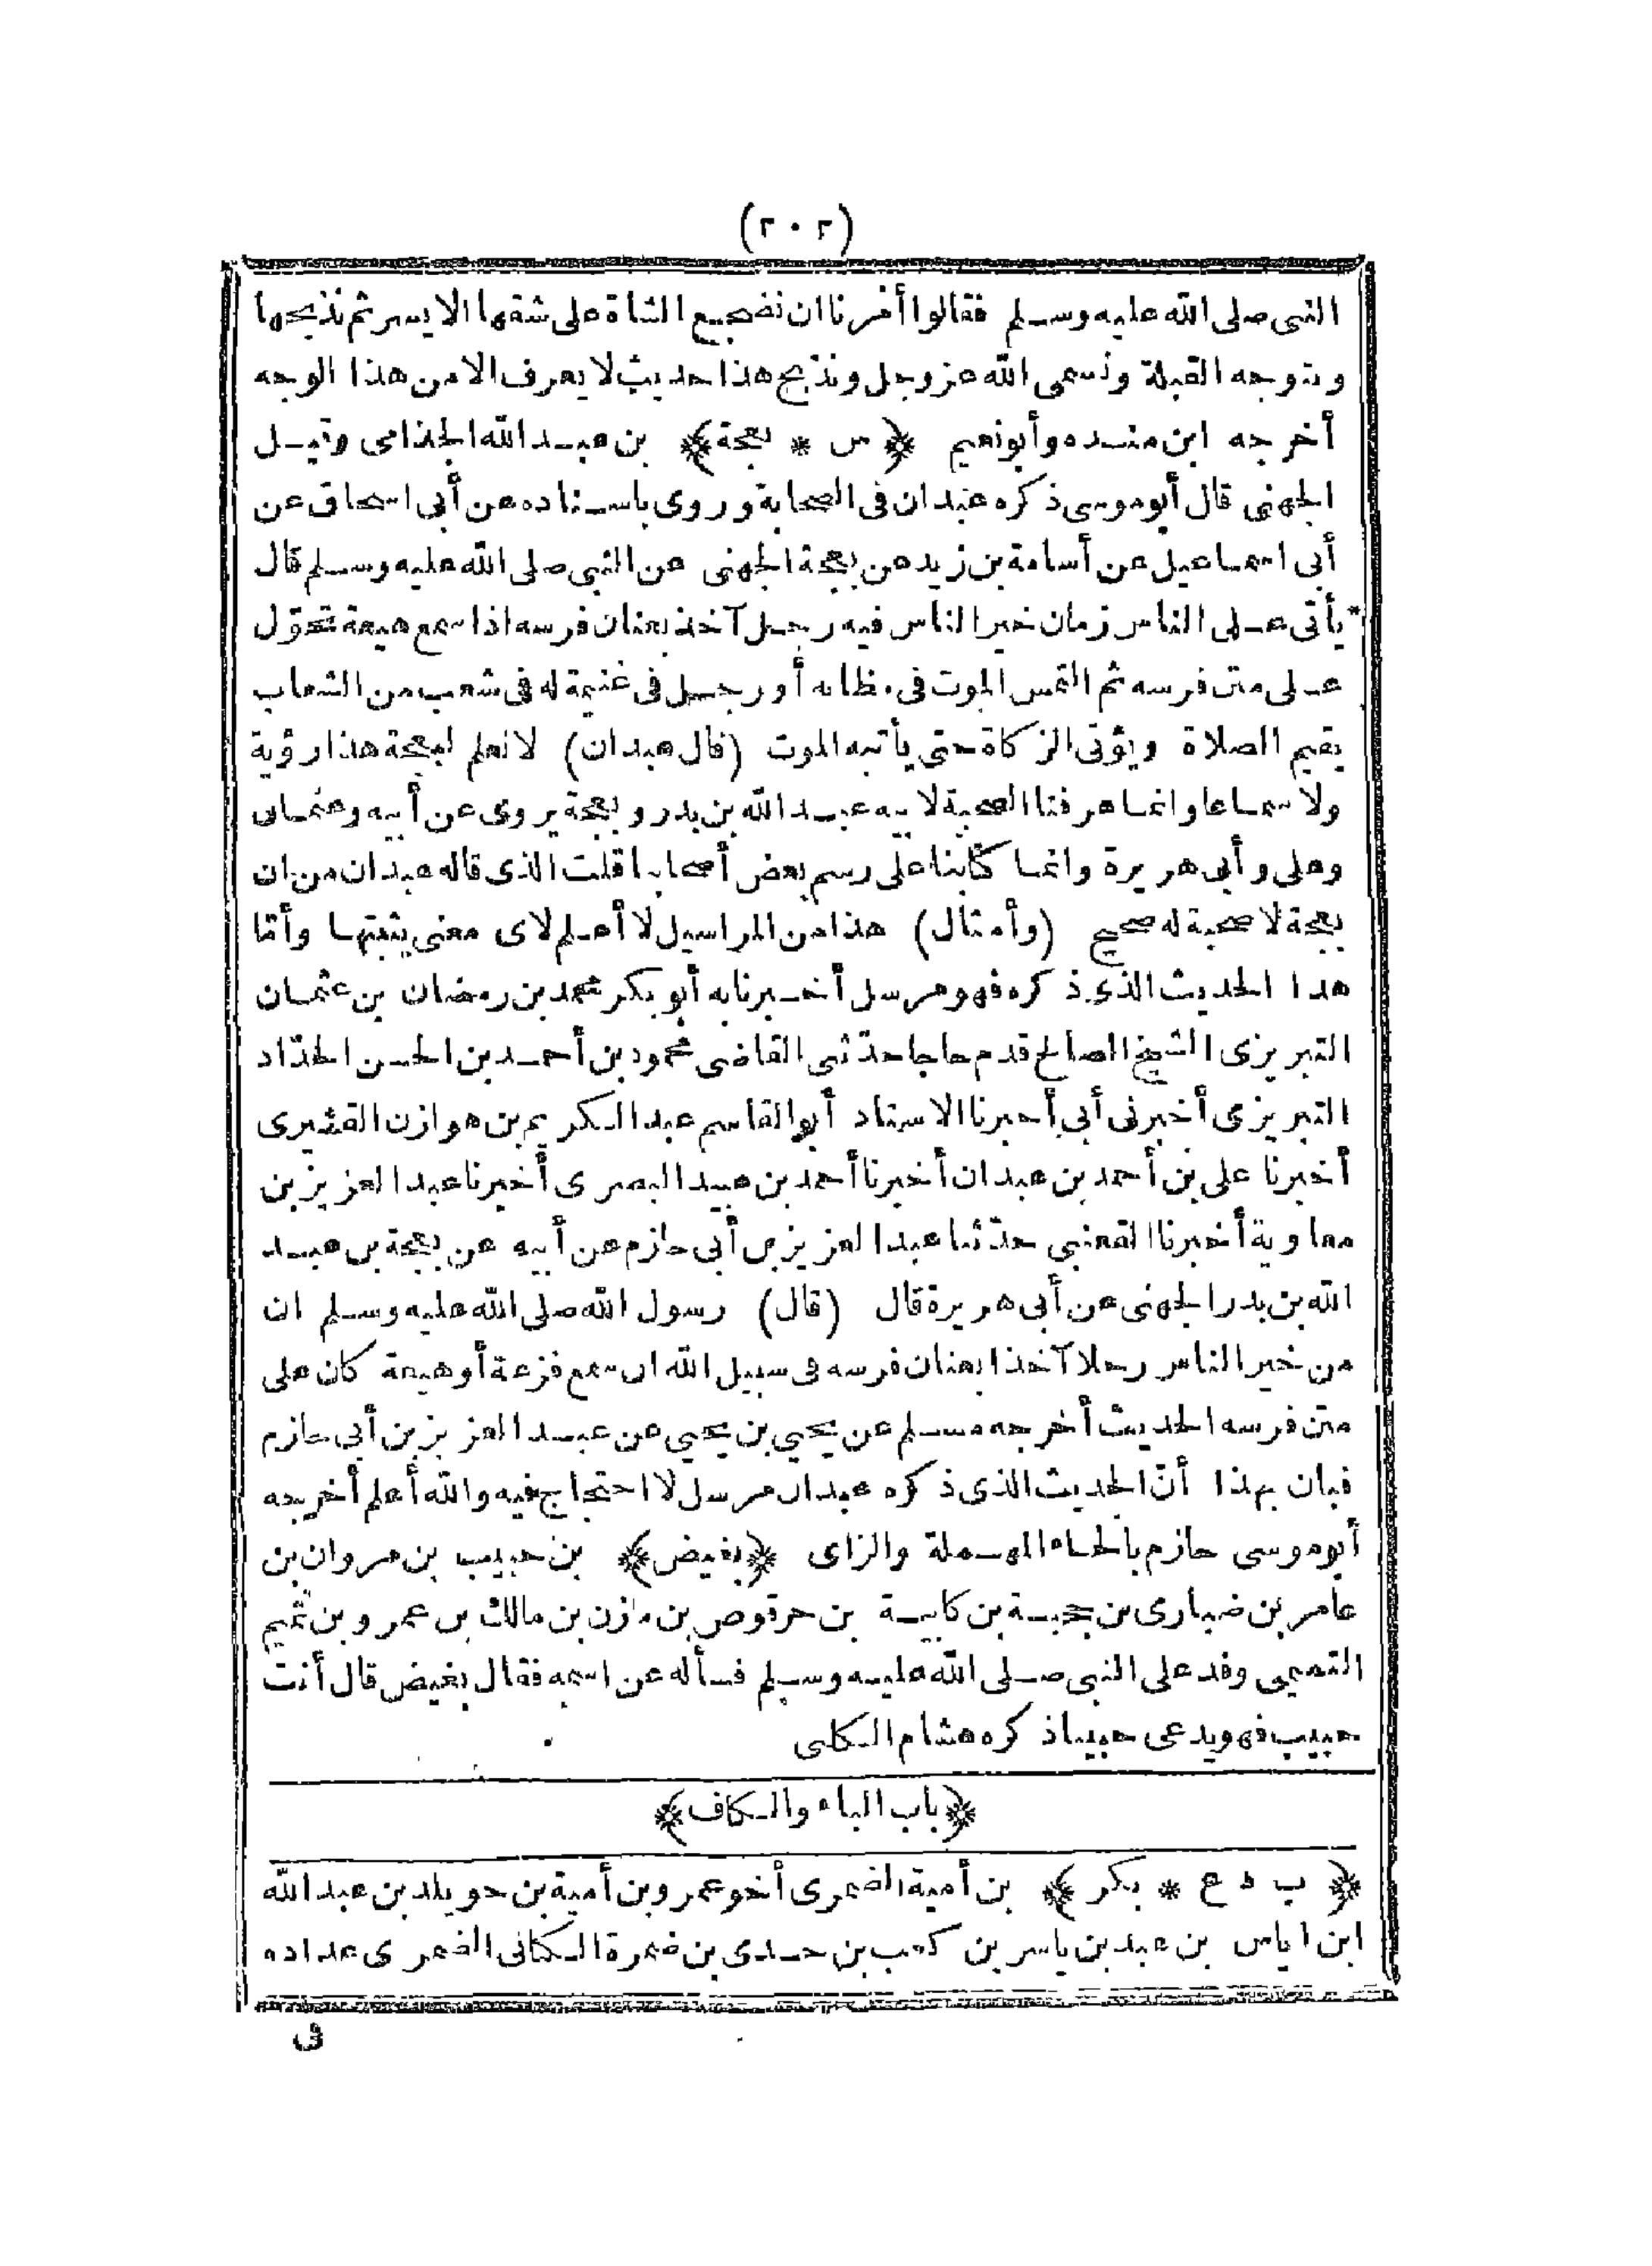 (٢٠٢)
النبى صلى الله عليه وسلم فقالوا أمرنا ان نضجع الشاة على شقها الايسر ثم نذبحها
ونتوجه القبلة ونسمى الله عز وجل ونذبح هذا حديث لا يعرف الا من هذا الوجه
أخرجه ابن منده وأبونعيم ﴿س * بعجة﴾ بن عبد الله الجذامى وقيل
الجهنى قال أبوموسى ذكره عبدان فى الصحابة وروى باسناده عن أبى اسحاق عن
أبى اسماعيل عن أسامة بن زيد عن بعجة الجهنى عن النبى صلى الله عليه وسلم قال
* يأتى على الناس زمان خير الناس فيه رجل آخذ بعنان فرسه اذا سمع هيعة تحوّل
على متن فرسه ثم التمس الموت فى مظانه أو رجل فى غنيمة له فى شعب من الشعاب
يقيم الصلاة ويؤتى الزكاة حتى يأتيه الموت (قال عبدان) لا نعلم لبعجة هذا رؤية
ولا سماعا وانما عرفنا الصحبة لابيه عبد الله بن بدر وبعجة يروى عن أبيه وعثمان
وعلى وأبى هريرة وانما كتبنا على رسم بعض أصحابنا قلت الذى قاله عبدان من ان
بعجة لا صحبة له صحيح (وأمثال) هذا من المراسيل لا أعلم لاى معنى يثبتها وأمّا
هذا الحديث الذى ذكره فهو مرسل أخبرنا به أبو بكر محمد بن رمضان بن عثمان
التبريزى الشيخ الصالح قدم حاجا حدّثنى القاضى محمود بن أحمد بن الحسن الحدّاد
التبريزى أخبرنى أبى أخبرنا الاستاد أبوالقاسم عبد الكريم بن هوازن القشيرى
أخبرنا على بن أحمد بن عبدان أخبرنا أحمد بن عبيد البصرى أخبرنا عبد العزيز بن
معاوية أخبرنا القعنبى حدّثنا عبد العزيز بن أبى حازم عن أبيه عن بعجة بن عبد
الله بن بدر الجهنى عن أبى هريرة قال (قال) رسول الله صلى الله عليه وسلم ان
من خير الناس رجلا آخذا بعنان فرسه فى سبيل الله ان سمع فزعة أو هيعة كان على
متن فرسه الحديث أخرجه مسلم عن يحيى بن يحيى عن عبد العزيز بن أبى حازم
فبان بهذا أنّ الحديث الذى ذكره عبدان مرسل لا احتجاج فيه والله أعلم أخرجه
أبوموسى حازم بالحاء المهملة والزاى ﴿بغيض﴾ بن حبيب بن مروان بن
عامر بن ضبارى بن حجية بن كابية بن حرقوص بن مازن بن مالك بن عمرو بن تميم
التميمى وفد على النبى صلى الله عليه وسلم فسأله عن اسمه فقال بغيض قال أنت
حبيب فهو يدعى حبيبا ذكره هشام الكلبى
﴿باب الباء والكاف﴾
﴿ب د ع * بكر﴾ بن أمية الضمرى أخو عمرو بن أمية بن خويلد بن عبد الله
ابن اياس بن عبد بن ياسر بن كعب بن جدى بن ضمرة الكنانى الضمرى عداده
فى